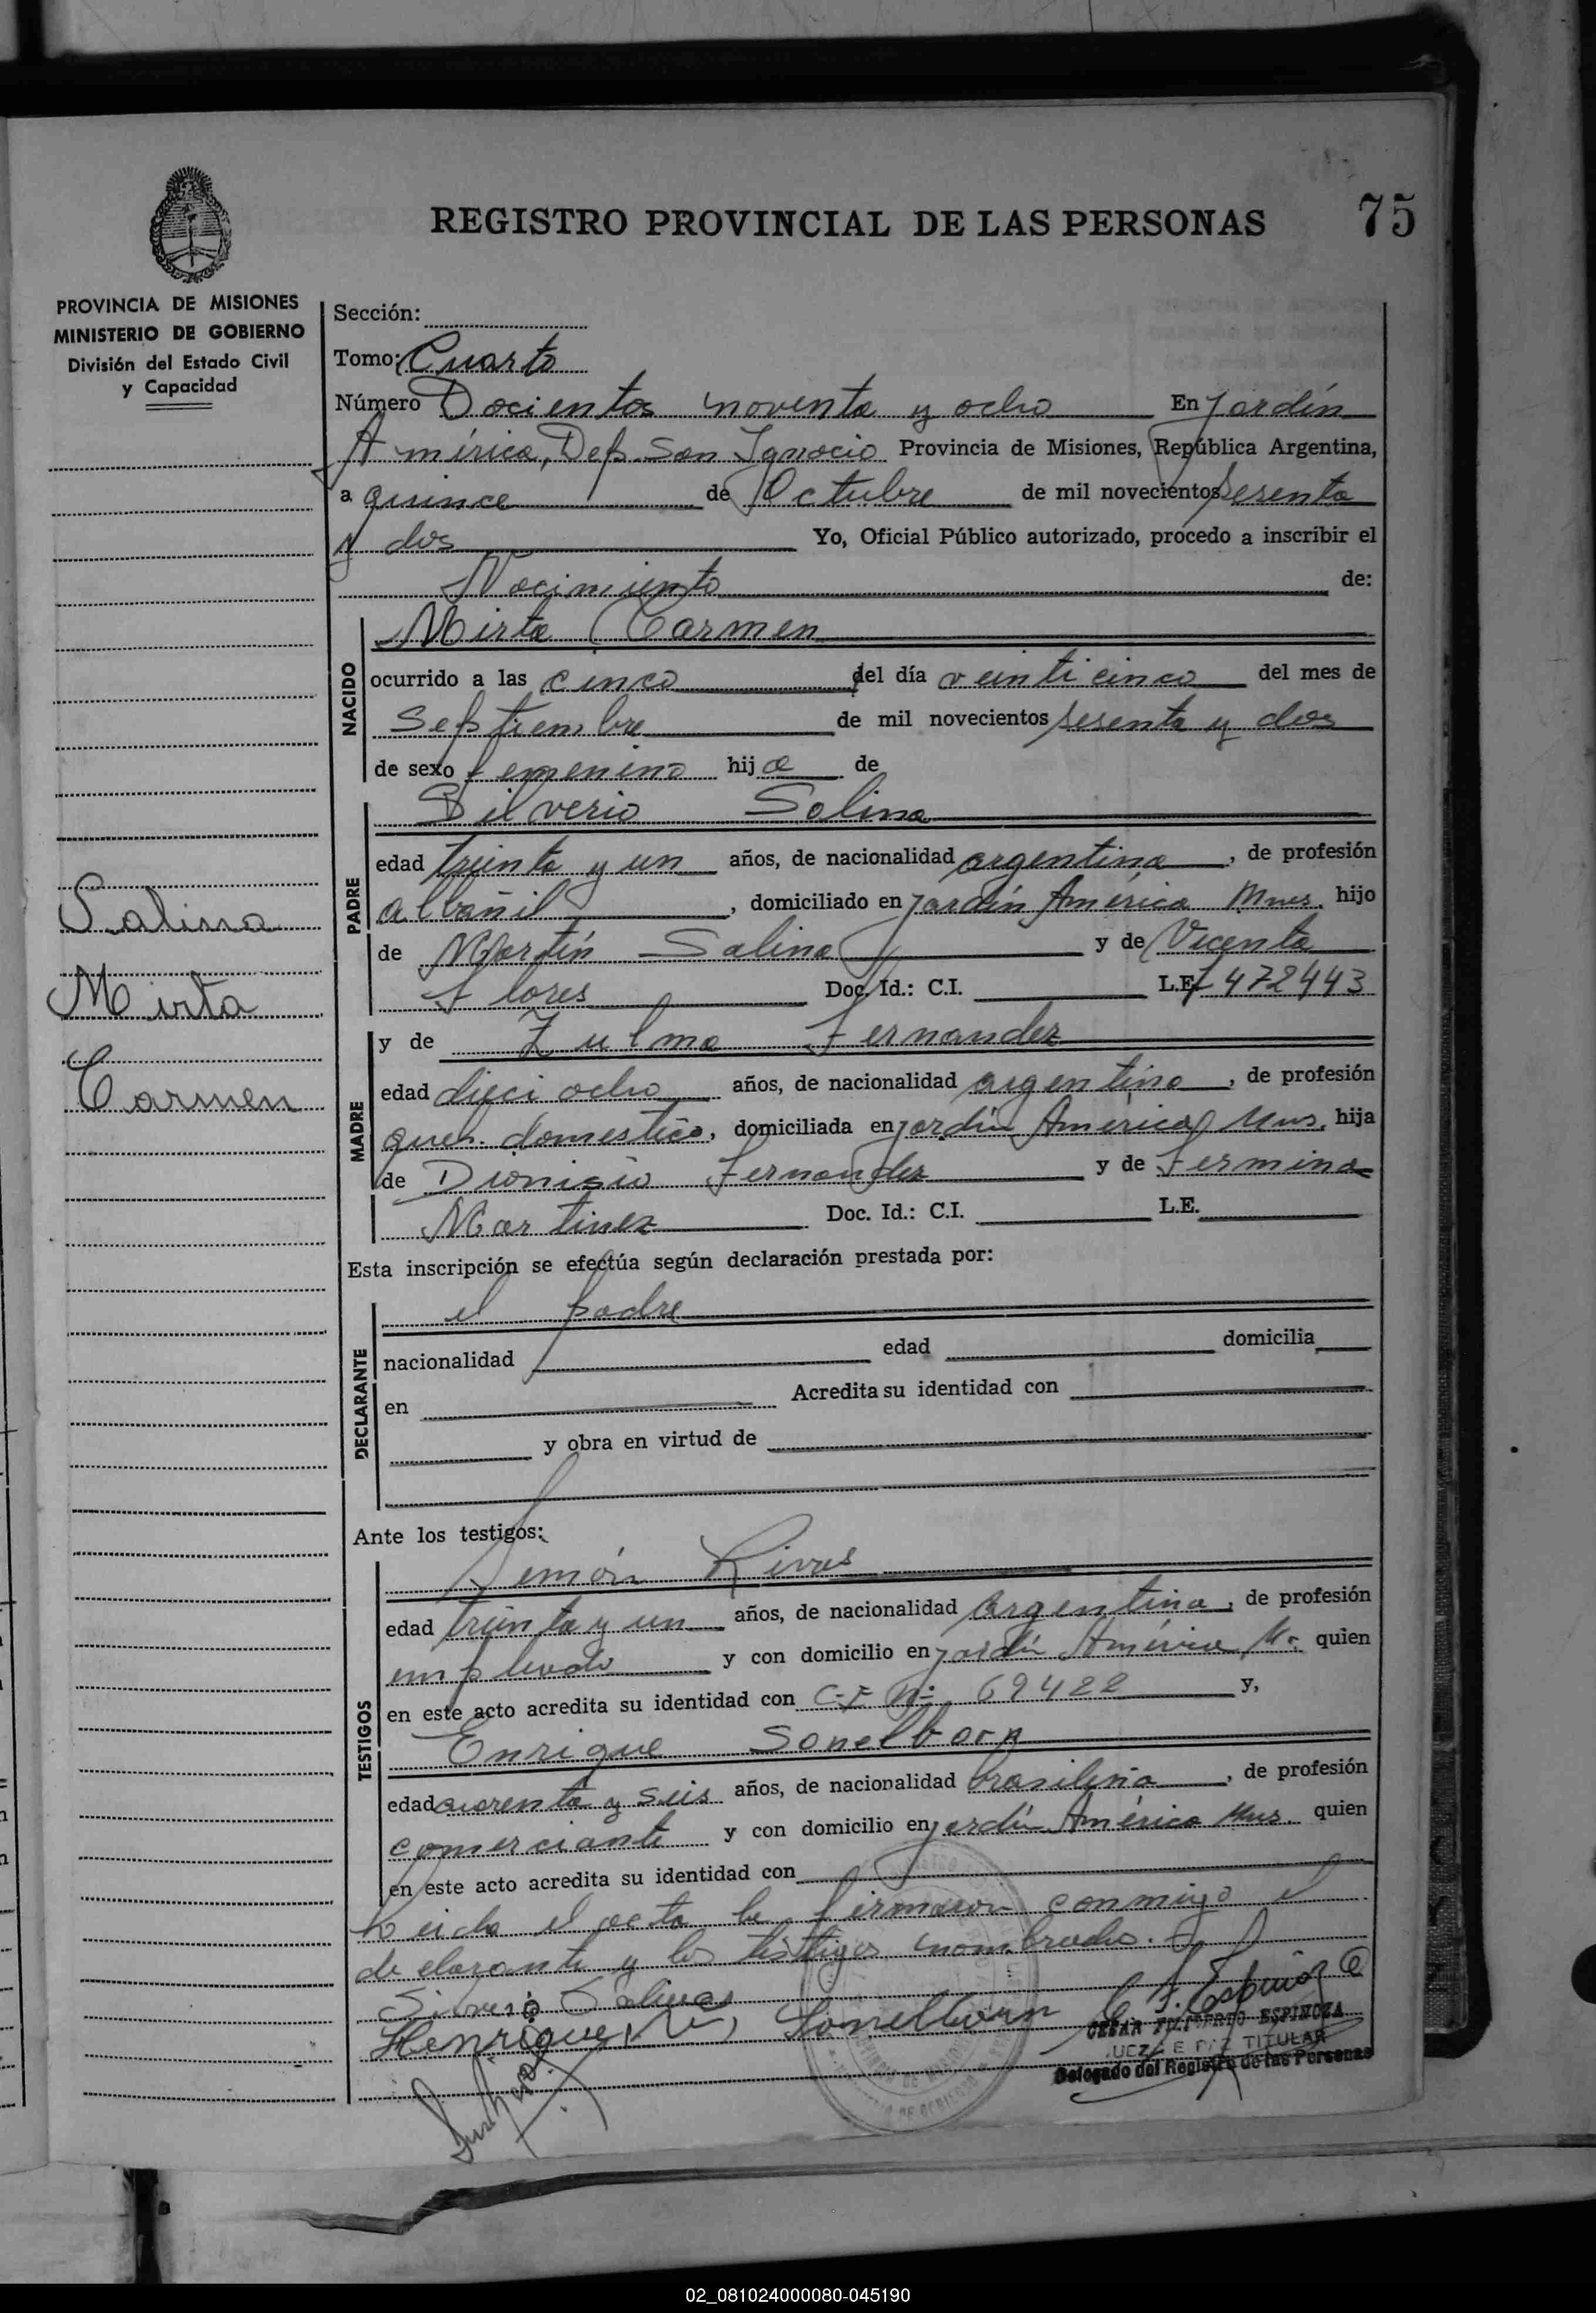 REGISTRO PROVINCIAL DE LAS PERSONAS 75
PROVINCIA DE MISIONES
MINISTERIO DE GOBIERNO
División del Estado Civil
y Capacidad
Salina
Mirta
Carmen
Sección:
Tomo: Cuarto
Número Docientos noventa y ocho En Jardín
América, Dep. San Ignacio Provincia de Misiones, República Argentina,
a quince de Octubre de mil novecientos sesenta
y dos Yo, Oficial Público autorizado, procedo a inscribir el
Nacimiento de:
NACIDO
Mirta Carmen
ocurrido a las cinco del día veinticinco del mes de
Septiembre de mil novecientos sesenta y dos
de sexo femenino hija de
PADRE
Silverio Salina
edad treinta y un años, de nacionalidad argentina, de profesión
albañil, domiciliado en Jardín América Mnes. hijo
de Martín Salina y de Vicenta
Flores Doc. Id.: C.I. L.E. 7472443
MADRE
y de Zulma Fernandez
edad dieci ocho años, de nacionalidad argentina, de profesión
queh. domestico, domiciliada en Jardín América Mns. hija
de Dionisio Fernandez y de Fermina
Martinez Doc. Id.: C.I. L.E.
Esta inscripción se efectúa según declaración prestada por:
DECLARANTE
el padre
nacionalidad edad domicilia
en Acredita su identidad con
y obra en virtud de
Ante los testigos:
TESTIGOS
Rivas
edad treinta y un años, de nacionalidad argentina, de profesión
empleado y con domicilio en Jardín América M. quien
en este acto acredita su identidad con 69422 y,
Enrique Sonelborn
edad cuarenta y seis años, de nacionalidad brasileña, de profesión
comerciante y con domicilio en Jardín América Mns. quien
en este acto acredita su identidad con
Leida el acta la firmaron conmigo el
declarante y los testigos nombrados.
Silverio Salinas
Henrique Sonelborn C. F. Espinoza
CESAR ESPINOZA
JUEZ DE PAZ TITULAR
Delegado del Registro de las Personas
02_081024000080-045190